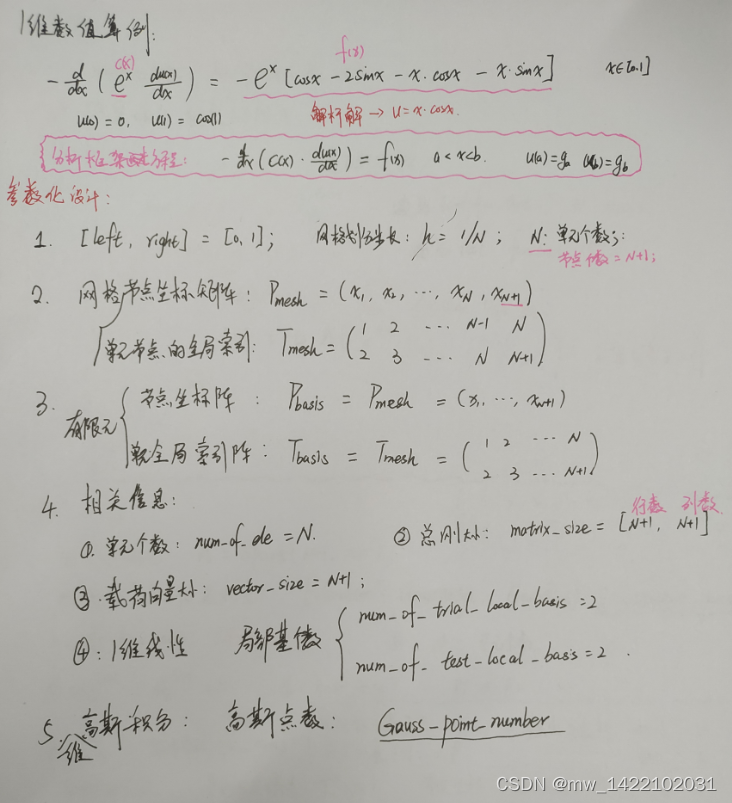 1维数值算例:
c(x) f(x)
-d/dx (e^x du(x)/dx) = -e^x [cosx - 2sinx - x·cosx - x·sinx] x∈[0,1]
u(0) = 0, u(1) = cos(1) 解析解 → u = x·cosx.
方程: -d/dx (c(x)·du(x)/dx) = f(x) a<x<b. u(a)=g_a u(b)=g_b
参数化设计:
1. [left, right] = [0,1]; 网格划分步长: h = 1/N; N: 单元个数;
节点个数 = N+1;
2. 网格节点坐标矩阵: P_mesh = (x_1, x_2, ⋯, x_N, x_N+1)
单元节点的全局索引: T_mesh = ( 1 2 ⋯ N-1 N
2 3 ⋯ N N+1 )
3. 有限元 { 节点坐标阵: P_basis = P_mesh = (x_1, ⋯, x_N+1)
全局索引阵: T_basis = T_mesh = ( 1 2 ⋯ N
2 3 ⋯ N+1 )
4. 相关信息:
行数 列数
①. 单元个数: num_of_ele = N. ② 总刚大小: matrix_size = [N+1, N+1]
③. 载荷向量大小: vector_size = N+1;
④: 1维线性 局部基函数 { num_of_trial_local_basis = 2
num_of_test_local_basis = 2.
5. 1维高斯积分: 高斯点数: Gauss_point_number
CSDN @mw_1422102031